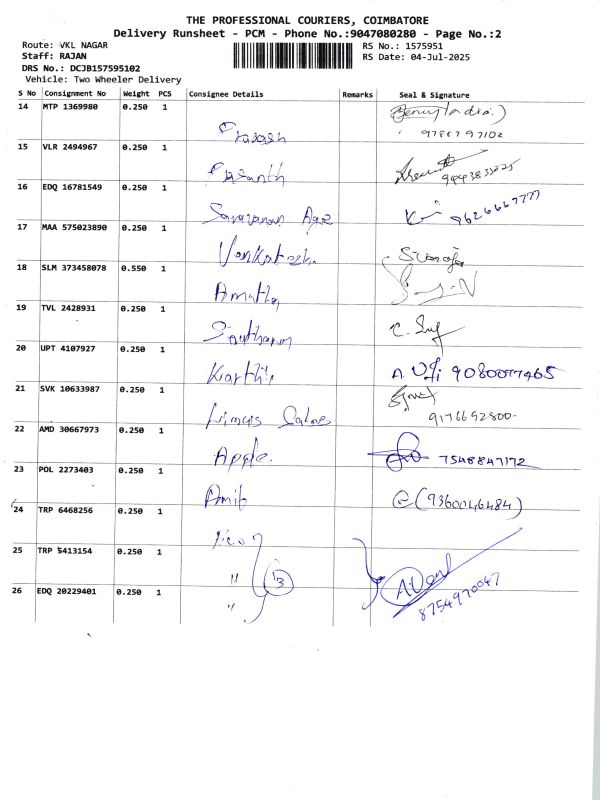 THE PROFESSIONAL COURIERS, COIMBATORE
Delivery Runsheet - PCM - Phone No.:9047080280 - Page No.:2
Route: VKL NAGAR
Staff: RAJAN
DRS No.: DCJB157595102
Vehicle: Two Wheeler Delivery
RS No.: 1575951
RS Date: 04-Jul-2025
S No Consignment No Weight PCS Consignee Details Remarks Seal & Signature
14 MTP 1369980 0.250 1 Prakash
15 VLR 2494967 0.250 1 Prasanth
16 EDQ 16781549 0.250 1 Saravanan 9626667777
17 MAA 575023890 0.250 1 Venkatesh
18 SLM 373458078 0.550 1 Amutha
19 TVL 2428931 0.250 1
20 UPT 4107927 0.250 1 Karthik 9080077465
21 SVK 10633987 0.250 1 9176692800
22 AMD 30667973 0.250 1 Apple 7548847172
23 POL 2273403 0.250 1 Amit (9360046484)
24 TRP 6468256 0.250 1
25 TRP 5413154 0.250 1 " 13
26 EDQ 20229401 0.250 1 " 8754970047